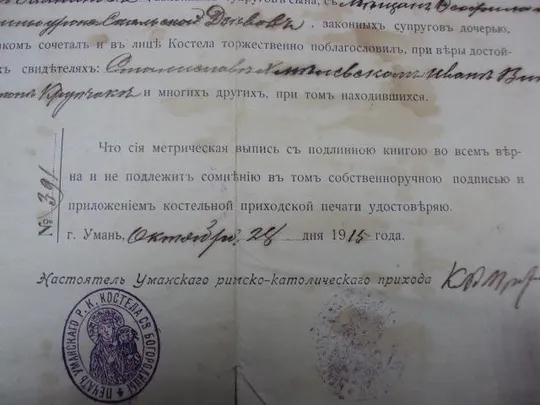 законныхъ супруговъ дочерью,
комъ сочеталъ и въ лицѣ Костела торжественно поблагословилъ, при вѣры достой-
хъ свидѣтеляхъ: Станиславѣ Иванѣ
и многихъ другихъ, при томъ находившихся.
Что сія метрическая выпись съ подлинною книгою во всемъ вѣр-
на и не подлежитъ сомнѣнію въ томъ собственноручною подписью и
приложеніемъ костельной приходской печати удостовѣряю.
№ 391
г. Умань, Октября 28 дня 1915 года.
Настоятель Уманскаго римско-католическаго прихода
ПЕЧАТЬ УМАНСКАГО Р. К. КОСТЕЛА СВ. БОГОРОДИЦЫ